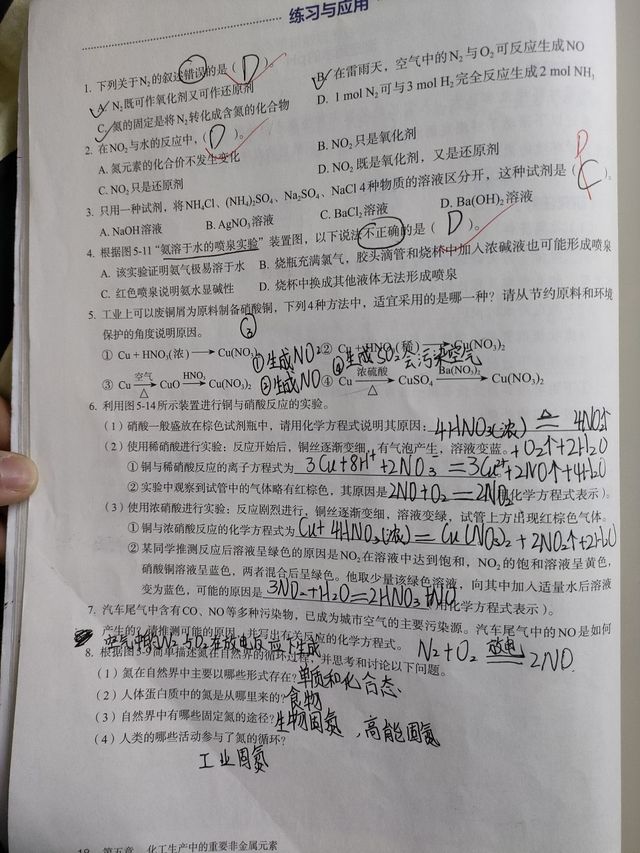 练习与应用
1. 下列关于N₂的叙述错误的是（ D ）。
A. N₂既可作氧化剂又可作还原剂
B. 在雷雨天，空气中的N₂与O₂可反应生成NO
C. 氮的固定是将N₂转化成含氮的化合物
D. 1 mol N₂可与3 mol H₂完全反应生成2 mol NH₃
2. 在NO₂与水的反应中，（ D ）。
A. 氮元素的化合价不发生变化
B. NO₂只是氧化剂
C. NO₂只是还原剂
D. NO₂既是氧化剂，又是还原剂
D
3. 只用一种试剂，将NH₄Cl、(NH₄)₂SO₄、Na₂SO₄、NaCl 4种物质的溶液区分开，这种试剂是（ C ）。
A. NaOH溶液 B. AgNO₃溶液 C. BaCl₂溶液 D. Ba(OH)₂溶液
4. 根据图5-11“氨溶于水的喷泉实验”装置图，以下说法不正确的是（ D ）。
A. 该实验证明氨气极易溶于水 B. 烧瓶充满氯气，胶头滴管和烧杯中加入浓碱液也可能形成喷泉
C. 红色喷泉说明氨水显碱性 D. 烧杯中换成其他液体无法形成喷泉
5. 工业上可以废铜屑为原料制备硝酸铜，下列4种方法中，适宜采用的是哪一种？请从节约原料和环境
保护的角度说明原因。 ③
① Cu + HNO₃(浓) ⟶ Cu(NO₃)₂ ② Cu + HNO₃(稀) ⟶ Cu(NO₃)₂
①生成NO₂ ④生成SO₂会污染空气
②生成NO
③ Cu 空气 △ ⟶ CuO HNO₃ ⟶ Cu(NO₃)₂ ④ Cu 浓硫酸 △ ⟶ CuSO₄ Ba(NO₃)₂ ⟶ Cu(NO₃)₂
6. 利用图5-14所示装置进行铜与硝酸反应的实验。
（1）硝酸一般盛放在棕色试剂瓶中，请用化学方程式说明其原因：4HNO₃(浓) ≜ 4NO₂↑
+O₂↑+2H₂O
（2）使用稀硝酸进行实验：反应开始后，铜丝逐渐变细，有气泡产生，溶液变蓝。
① 铜与稀硝酸反应的离子方程式为 3Cu+8H⁺+2NO₃ = 3Cu²⁺+2NO↑+4H₂O
② 实验中观察到试管中的气体略有红棕色，其原因是 2NO+O₂=2NO₂（用化学方程式表示）。
（3）使用浓硝酸进行实验：反应剧烈进行，铜丝逐渐变细，溶液变绿，试管上方出现红棕色气体。
① 铜与浓硝酸反应的化学方程式为 Cu+4HNO₃(浓)=Cu(NO₃)₂+2NO₂↑+2H₂O
② 某同学推测反应后溶液呈绿色的原因是NO₂在溶液中达到饱和，NO₂的饱和溶液呈黄色，
硝酸铜溶液呈蓝色，两者混合后呈绿色。他取少量该绿色溶液，向其中加入适量水后溶液
变为蓝色，可能的原因是 3NO₂+H₂O=2HNO₃+NO（用化学方程式表示）。
7. 汽车尾气中含有CO、NO等多种污染物，已成为城市空气的主要污染源。汽车尾气中的NO是如何
产生的？请推测可能的原因，并写出有关反应的化学方程式。
空气中的N₂与O₂在放电反应下生成 N₂+O₂ 放电 = 2NO
8. 根据图5-9简单描述氮在自然界的循环过程，并思考和讨论以下问题。
（1）氮在自然界中主要以哪些形式存在？单质和化合态
（2）人体蛋白质中的氮是从哪里来的？食物
（3）自然界中有哪些固定氮的途径？生物固氮，高能固氮
（4）人类的哪些活动参与了氮的循环？
工业固氮
18 第五章 化工生产中的重要非金属元素